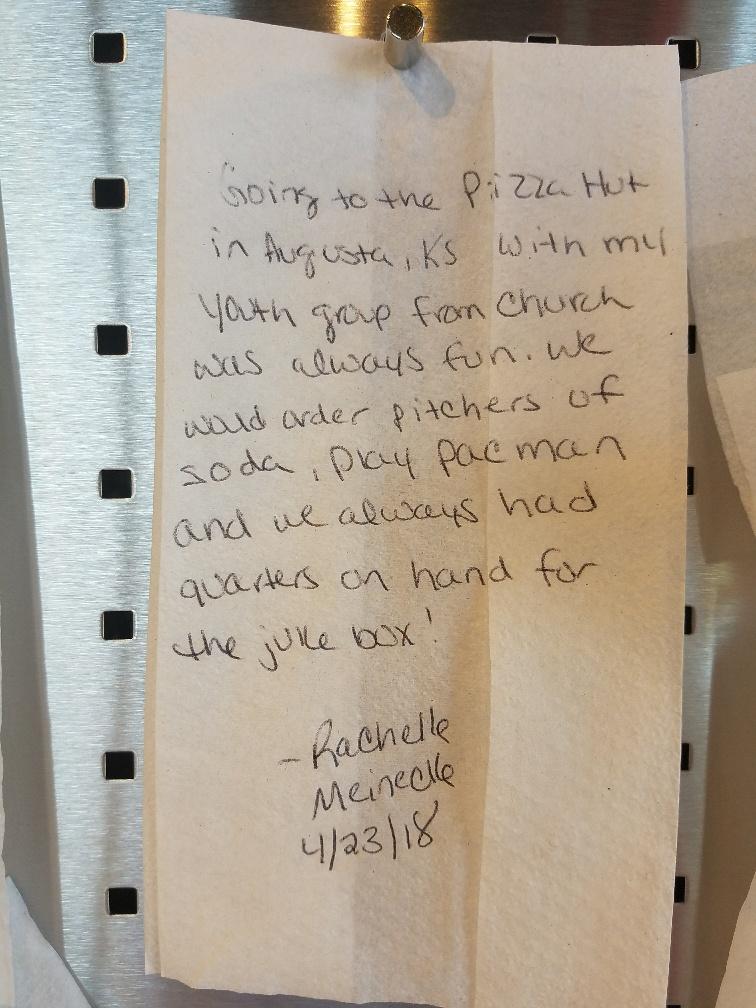 Going to the Pizza Hut
in Augusta, KS with my
Youth group from church
was always fun. we
would order pitchers of
soda, play pac man
and we always had
quarters on hand for
the juke box!
- Rachelle
Meinecke
4/23/18